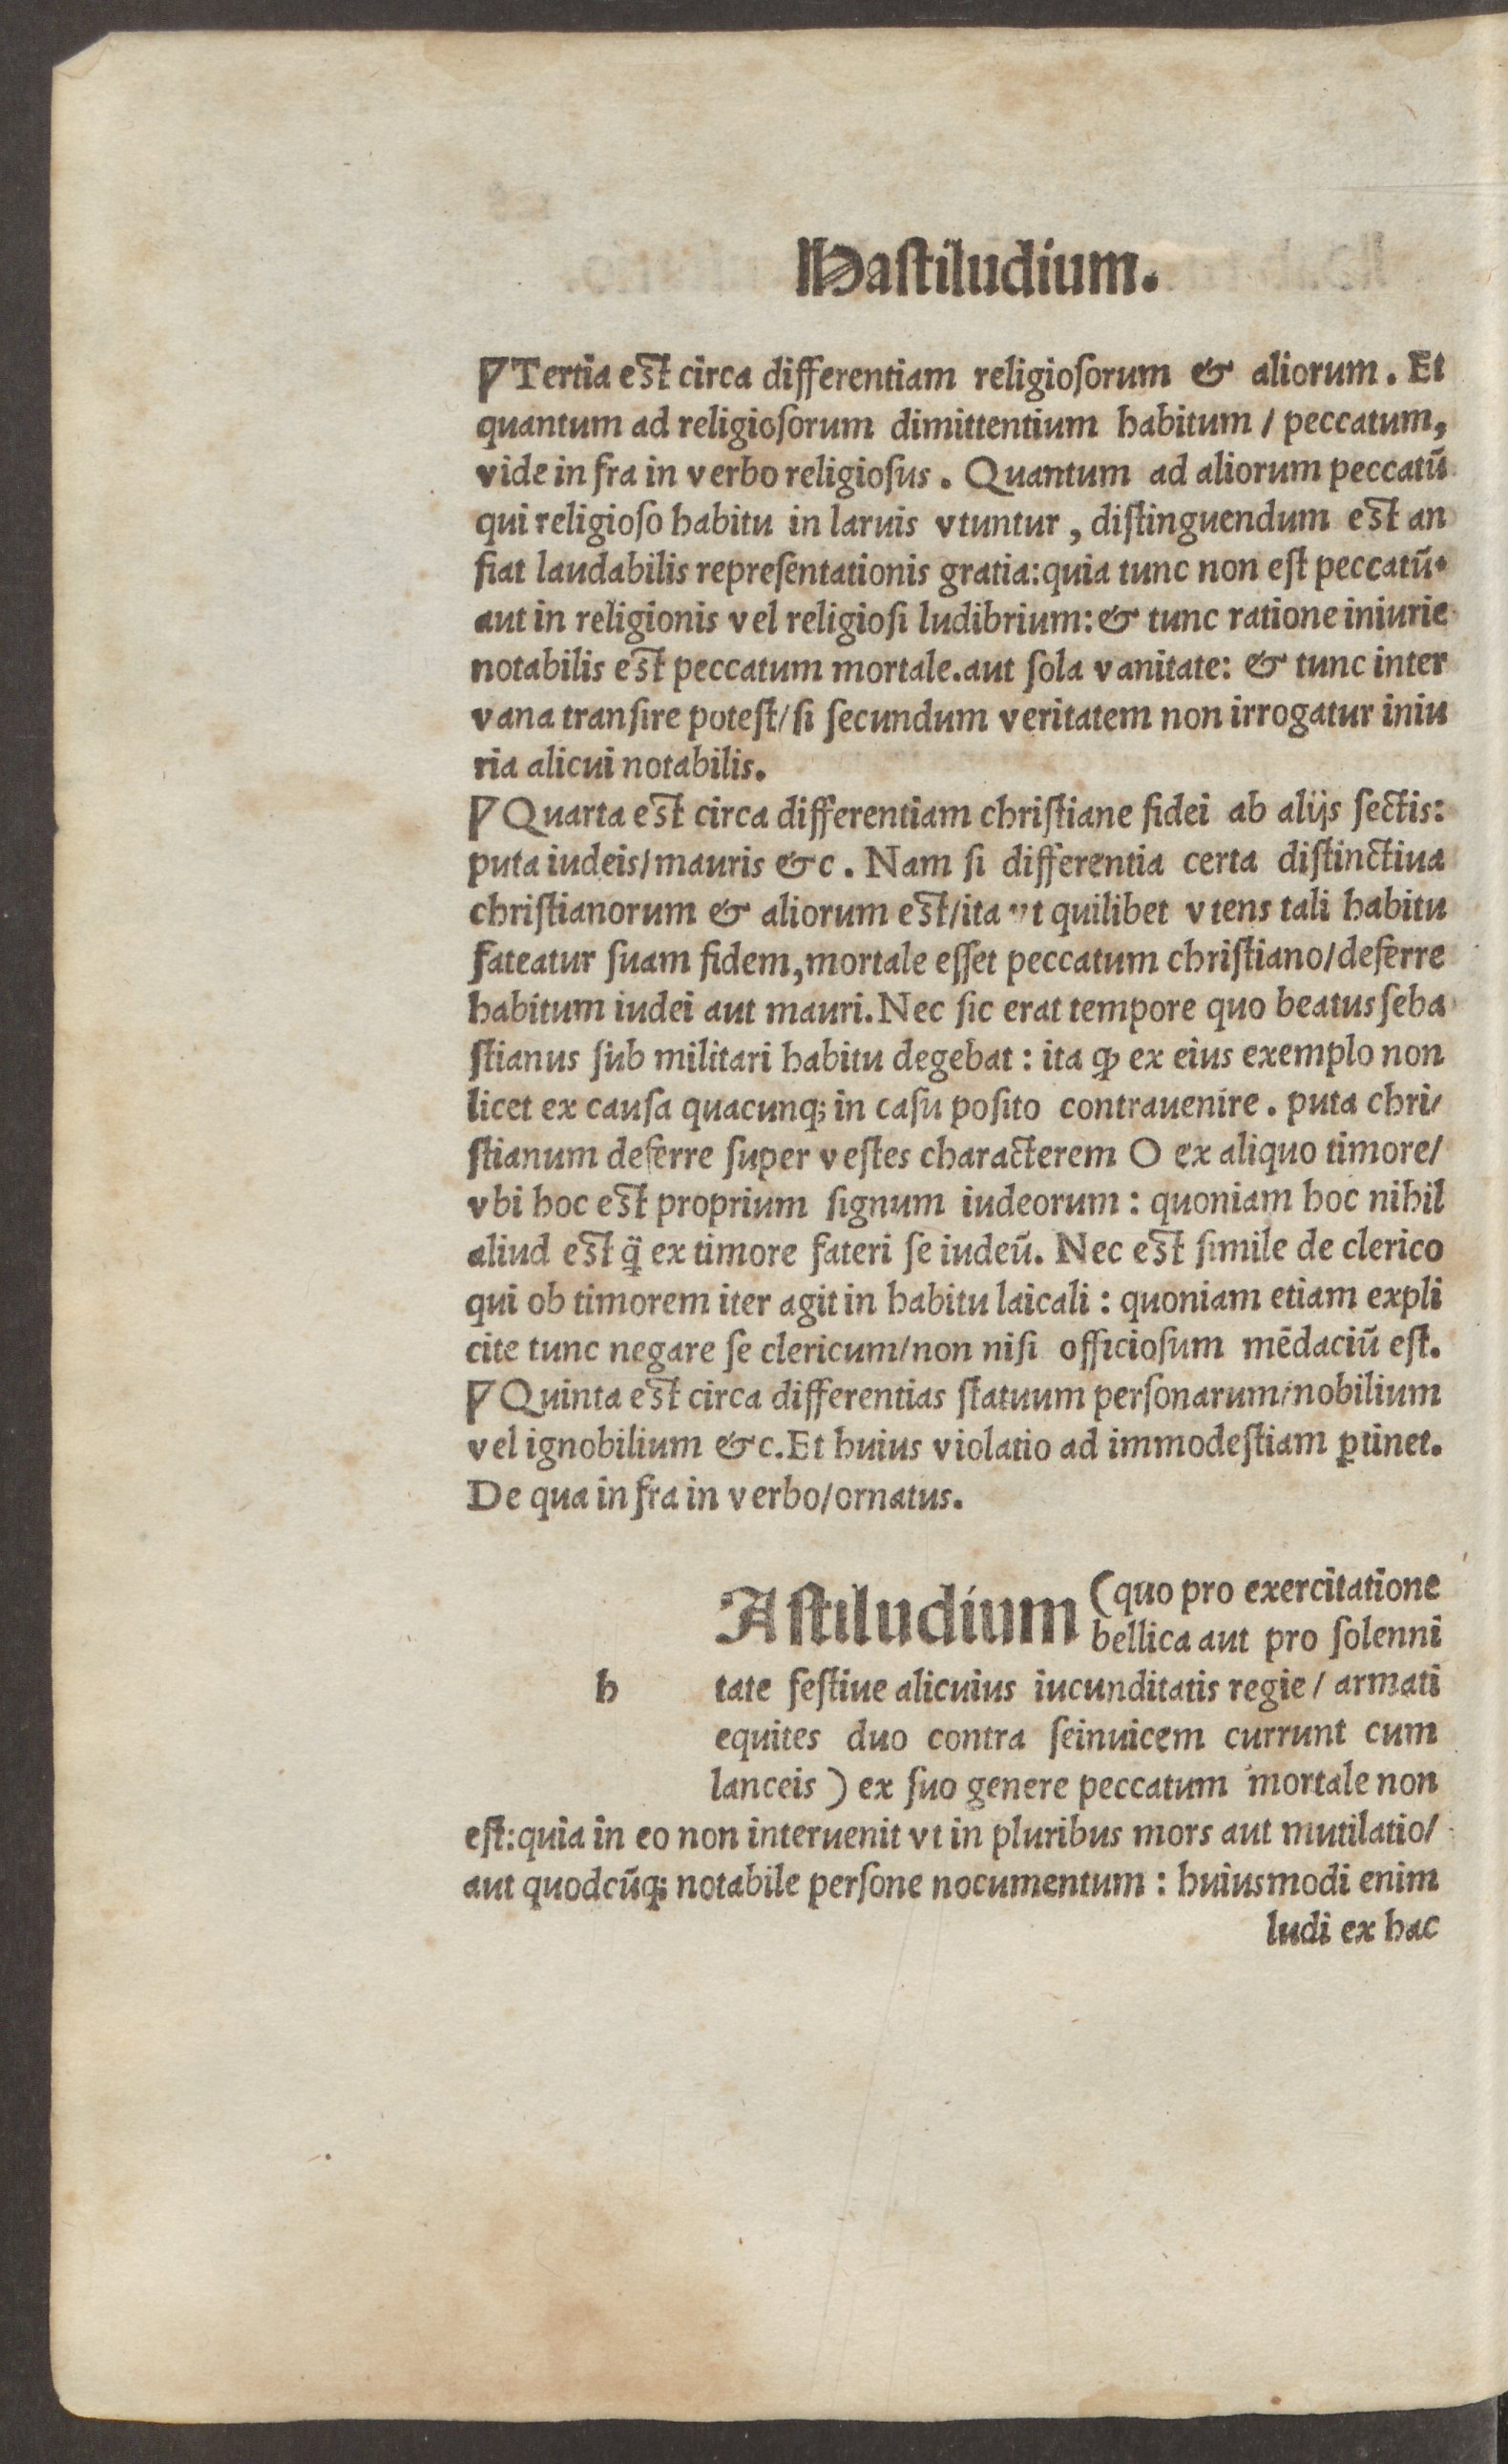 Hastiludium.
¶ Tertia est circa differentiam religiosorum & aliorum. Et
quantum ad religiosorum dimittentium habitum / peccatum,
vide in fra in verbo religiosus. Quantum ad aliorum peccatū
qui religioso habitu in laruis vtuntur, distinguendum est an
fiat laudabilis representationis gratia: quia tunc non est peccatū.
aut in religionis vel religiosi ludibrium: & tunc ratione iniurie
notabilis est peccatum mortale. aut sola vanitate: & tunc inter
vana transire potest/ si secundum veritatem non irrogatur iniu
ria alicui notabilis.
¶ Quarta est circa differentiam christiane fidei ab alijs sectis:
puta iudeis/ mauris &c. Nam si differentia certa distinctiua
christianorum & aliorum est/ ita vt quilibet vtens tali habitu
fateatur suam fidem, mortale esset peccatum christiano/ deferre
habitum iudei aut mauri. Nec sic erat tempore quo beatus seba
stianus sub militari habitu degebat: ita ꝙ ex eius exemplo non
licet ex causa quacunqꝫ in casu posito contrauenire. puta chri/
stianum deferre super vestes characterem O ex aliquo timore/
vbi hoc est proprium signum iudeorum: quoniam hoc nihil
aliud est q̄ ex timore fateri se iudeū. Nec est simile de clerico
qui ob timorem iter agit in habitu laicali: quoniam etiam expli
cite tunc negare se clericum/ non nisi officiosum mēdaciū est.
¶ Quinta est circa differentias statuum personarum/ nobilium
vel ignobilium &c. Et huius violatio ad immodestiam ꝑtinet.
De qua in fra in verbo/ ornatus.
Astiludium (quo pro exercitatione
bellica aut pro solenni
h tate festiue alicuius iucunditatis regie/ armati
equites duo contra seinuicem currunt cum
lanceis) ex suo genere peccatum mortale non
est: quia in eo non interuenit vt in pluribus mors aut mutilatio/
aut quodcūqꝫ notabile persone nocumentum: huiusmodi enim
ludi ex hac